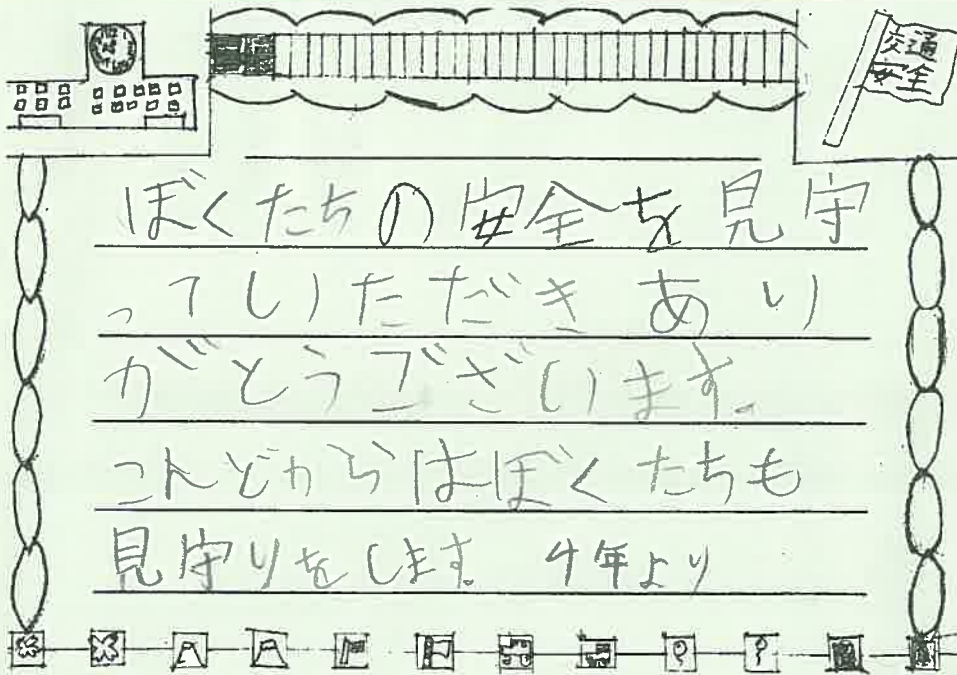 交通
安全
ぼくたちの安全を見守
っていただきあり
がとうございます。
こんどからはぼくたちも
見守りをします。 4年より